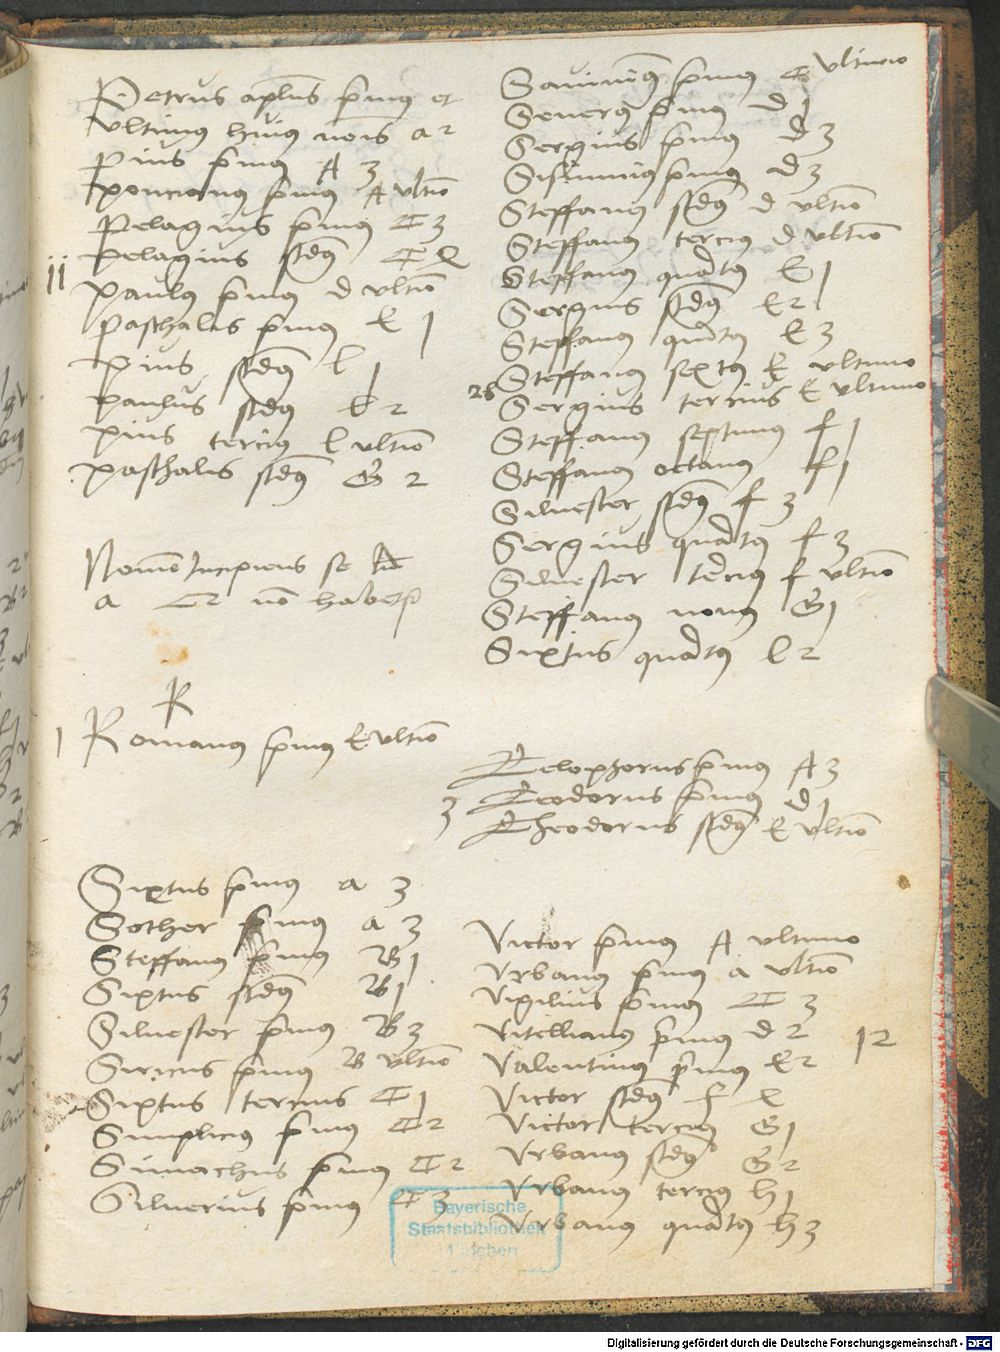 Petrus aplus pmus et
ultimus huius nois a 2
Pius pmus A 3
poncianus pmus A ultio
Pelagius pmus C 3
11 pelagius scdus C
paulus pmus d ultio
paschalis pmus E 1
pius scdus l 1
paulus scdus l 2
pius tercius l ultio
paschalis scdus G 2
Nomen Incipiens se
a no habetur
R
1 Romanus pmus E ultio
Sixtus pmus a 3
Sother pmus a 3
Steffanus pmus B 1
Sixtus scdus B 1
Siluester pmus B 3
Siricus pmus B ultio
Sixtus tercius C 1
Simplicius pmus C 2
Simachus pmus C 2
Siluerius pmus C 3
Sauinianus pmus C ultimo
Seuerus pmus d 1
Sergius pmus d 3
Sisinnius pmus d 3
Steffanus scdus d ultio
Steffanus tercius d ultio
Steffanus quartus E 1
Sergius scdus E 2
Steffanus quintus E 3
Steffanus sextus E ultimo
28 Sergius tercius E ultimo
Steffanus septimus f 1
Steffanus octauus f 1
Siluester scdus f 3
Sergius quartus f 3
Siluester tercius f ultio
Steffanus nonus G 1
Sixtus quartus l 2
Telophorus pmus A 3
3 Teodorus pmus d 1
Theodorus scdus E ultio
Victor pmus A ultimo
Vrbanus pmus a ultio
Vigilius pmus C 3
Vitellianus pmus d 2 12
Valentinus primus E 2
Victor scdus f
Victor tercius G 1
Vrbanus scdus G 2
Vrbanus tercius h 1
Vrbanus quartus h 3
Bayerische
Staatsbibliothek
München
Digitalisierung gefördert durch die Deutsche Forschungsgemeinschaft - DFG